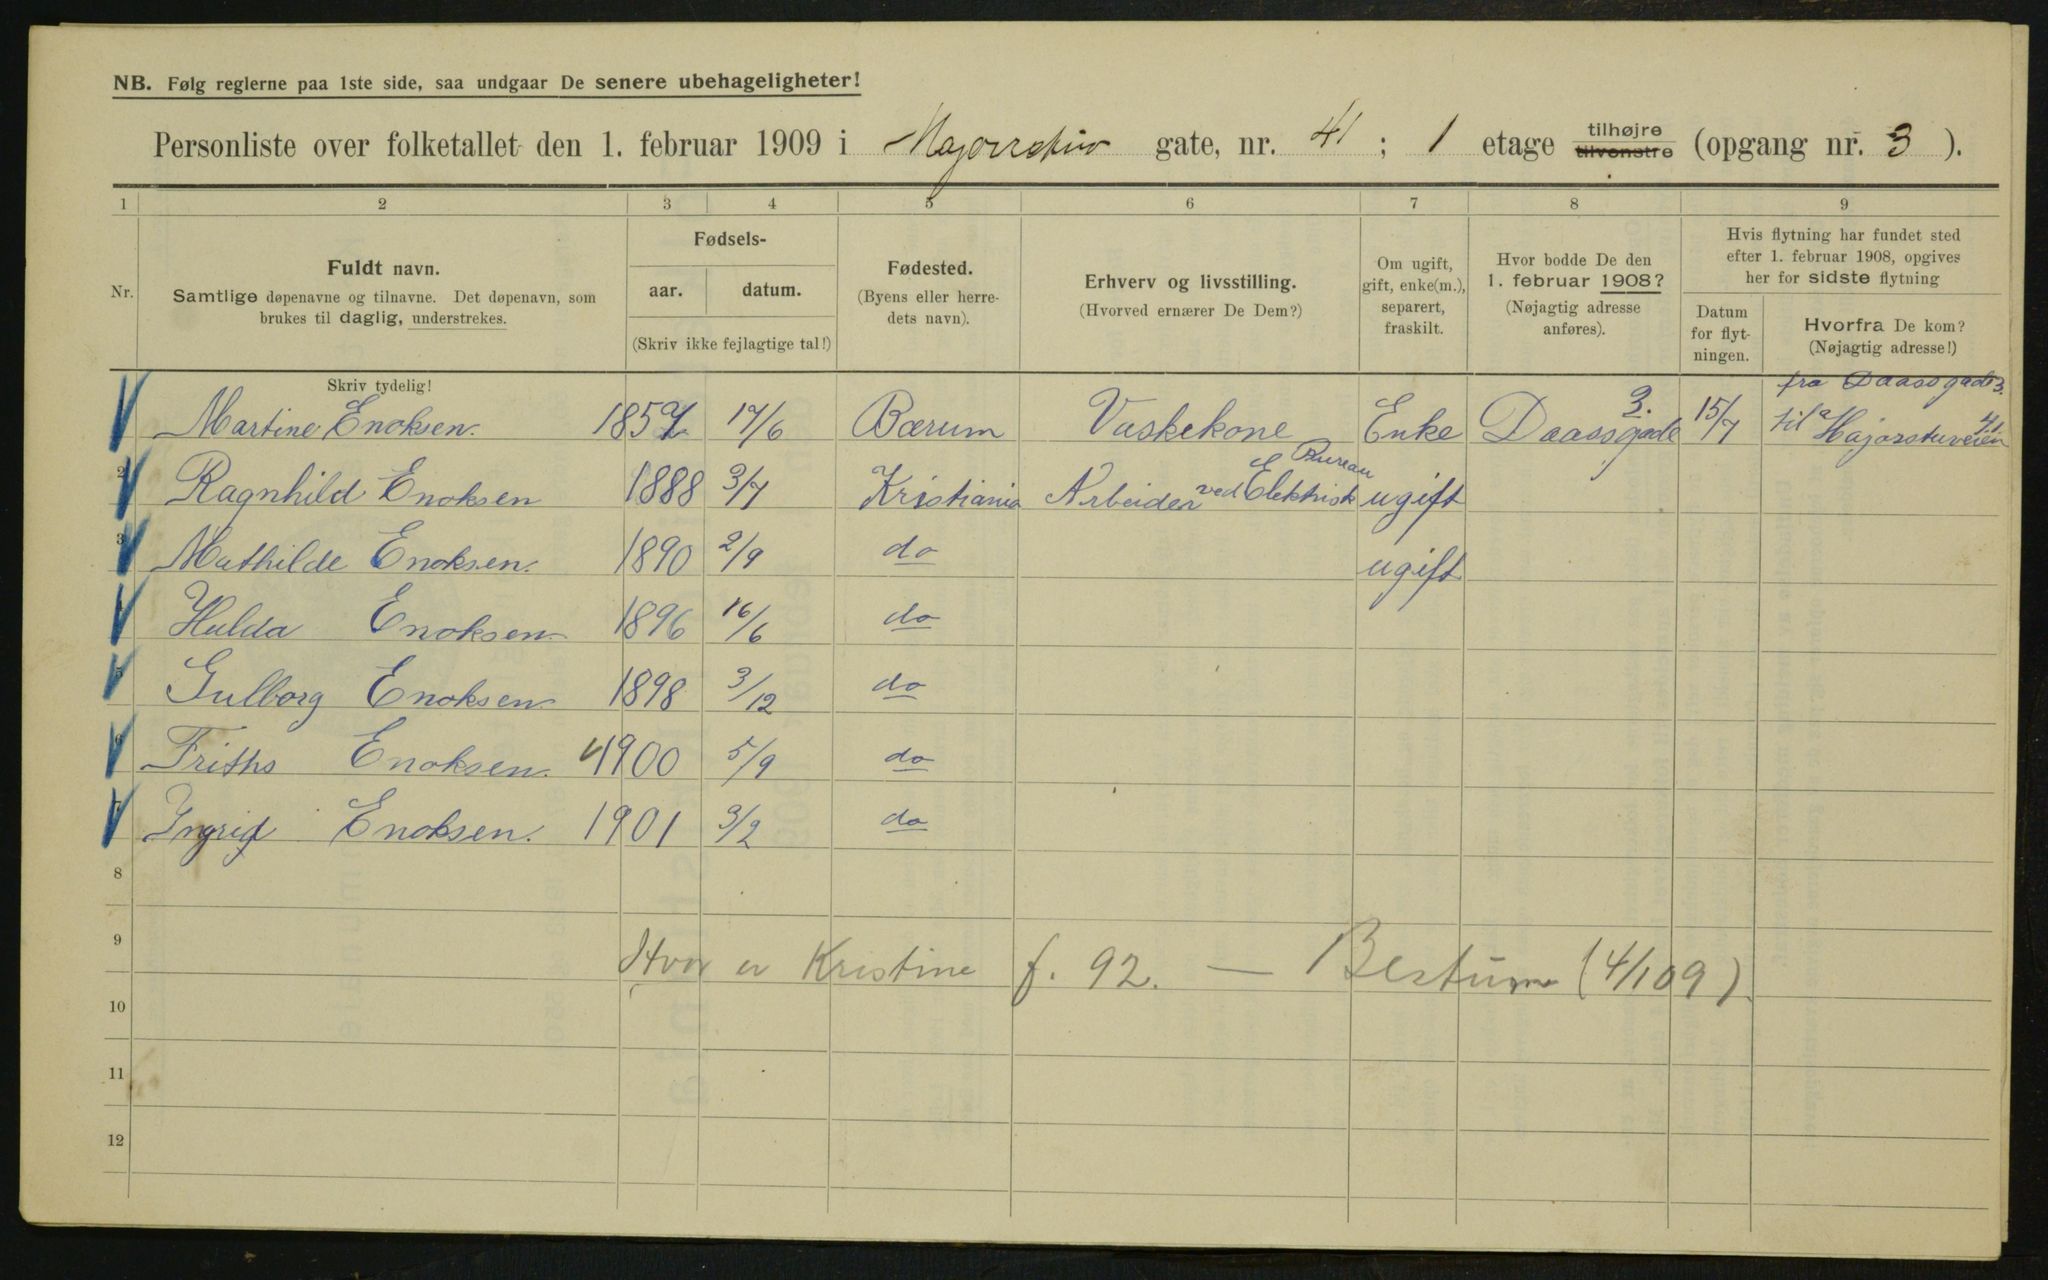 NB. Følg reglerne paa 1ste side, saa undgaar De senere ubehageligheter!
Personliste over folketallet den 1. februar 1909 i gate, nr. 41 ; 1 etage tilhøjre tilvenstre (opgang nr. 3 ).
1 2 3 4 5 6 7 8 9
Nr.
Fuldt navn.
Samtlige døpenavne og tilnavne. Det døpenavn, som
brukes til daglig, understrekes.
Skriv tydelig!
Fødsels-
aar. datum.
(Skriv ikke fejlagtige tal!)
Fødested.
(Byens eller herre-
dets navn).
Erhverv og livsstilling.
(Hvorved ernærer De Dem?)
Om ugift,
gift, enke(m.),
separert,
fraskilt.
Hvor bodde De den
1. februar 1908?
(Nøjagtig adresse
anføres).
Hvis flytning har fundet sted
efter 1. februar 1908, opgives
her for sidste flytning
Datum
for flyt-
ningen.
Hvorfra De kom?
(Nøjagtig adresse!)
fra Daasgade 3.
Martine Enoksen. 1857 17/6 Bærum Vaskekone Enke Daassgade 3. 15/7 til Majorstuveien 41.
2 Ragnhild Enoksen 1888 3/7 Kristiania Arbeider ved Elektrisk Bureau ugift
3 Mathilde Enoksen. 1890 2/9 do ugift
4 Hulda Enoksen. 1896 16/6 do
5 Gulborg Enoksen. 1898 3/12 do
6 Enoksen. 1900 5/9 do
7 Ingrid Enoksen. 1901 3/2 do
8
9 Hvor er Kristine f. 92. — Bestum (4/1 09)
10
11
12